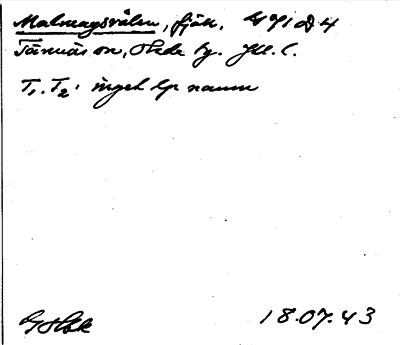 Malmagsvålen, fjäll.
Tännäs sn, Hede tg. Jtl. l.
T₁. T₂: inget lp namn
18.07.43